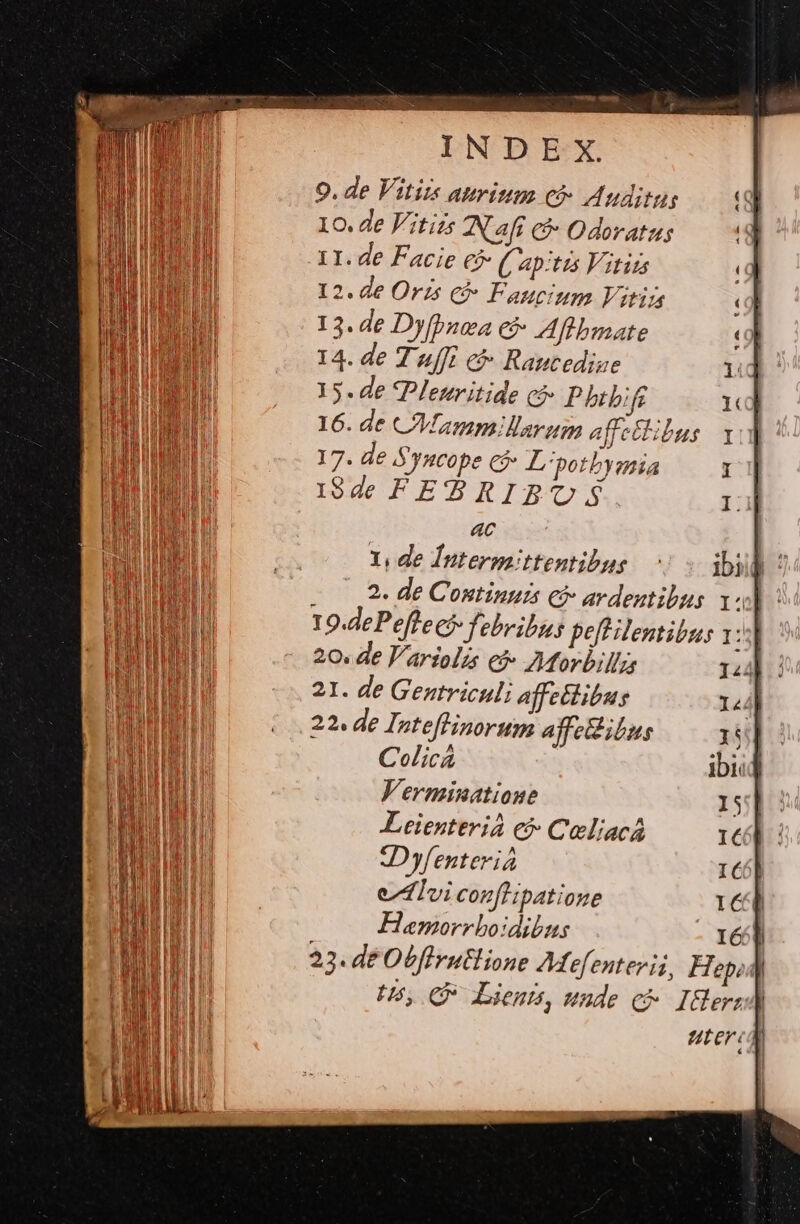 INDEX.
9. de Vitiis aurium & Auditus
10. de Vitiis Naſi & Odoratus
11. de Facie & Capitis Vitiis
12. de Oris & Faucium Vitiis
13. de Dyſpnœa & Aſthmate
14. de Tuſſi & Raucedine
15. de Pleuritide & Phthiſi
16. de Mammillarum affectibus
17. de Syncope & Lipothymia
18 de FEBRIBUS.
ac
1, de Intermittentibus ibi
2. de Continuis & ardentibus
19. de Peſte & febribus peſtilentibus
20. de Variolis & Morbillis
21. de Gentriculi affectibus
22. de Inteſtinorum affectibus
Colicâ ibi
Verminatione
Leienteriâ & Cœliacâ
Dyſenteriâ
Alvi conſtipatione
Hæmorrhoidibus
23. de Obſtructione Meſenterii, Hepa
tis, & Lienis, unde & Icterus
uter